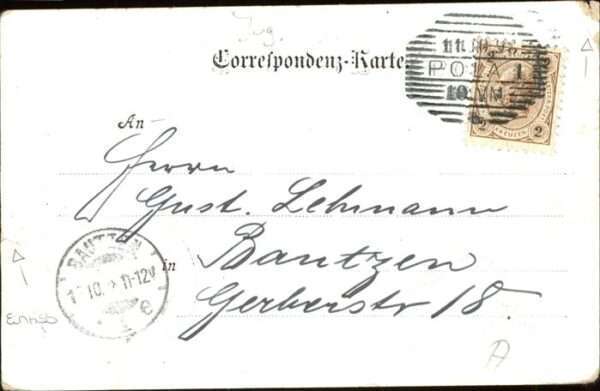 Correspondenz-Karte
POLA 1
An
Herrn
Gust. Lehmann
in Bautzen
Gerberstr 18.
BAUTZEN
11-12V
e
2
2
A